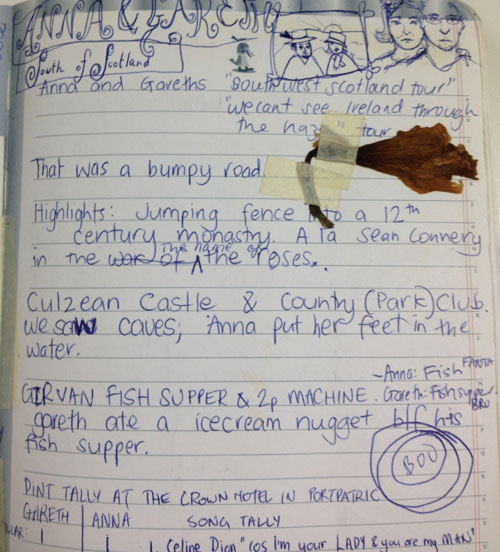 ANNA & GARETH
South of Scotland
Anna and Gareths "south west scotland tour"
"we cant see Ireland through
the haze" tour
That was a bumpy road.
Highlights: Jumping fence into a 12th
century monastry. A la Sean Connery
in the war of the name of the roses.
Culzean Castle & Country (Park) Club.
we saw caves; Anna put her feet in the
water.
~Anna: Fish FANTA
GIRVAN FISH SUPPER & 2p MACHINE. Gareth: Fish supper. BRU
gareth ate a icecream nugget b/f his
fish supper.
BOO
PINT TALLY AT THE CROWN HOTEL IN PORTPATRIC
GARETH ANNA SONG TALLY
1 1 1. Celine Dion "cos I'm your LADY & you are my MAN"